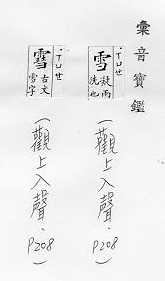 彙音寶鑑
·ㄒㄩㄝ
雪
雨
洗也
(觀上入聲.P208)
·ㄒㄩㄝ
古文
雪字
(觀上入聲.P208)